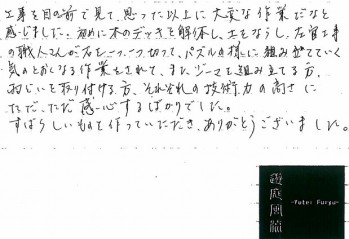 工事を目の前で見て、思った以上に大変な作業だなと
感じました。初めに木のデッキを解体し、土をならし、左官工事
の職人さんが石を一つ一つ切って、パズルの様に組み立てていく
気のとおくなる作業をされて、また、ブースを組み立てる方、
を取り付ける方、それぞれの技術力の高さに
ただ、ただ感心するばかりでした。
すばらしいものを作っていただき、ありがとうございました。
遊庭風流
-Yutei Furyu-